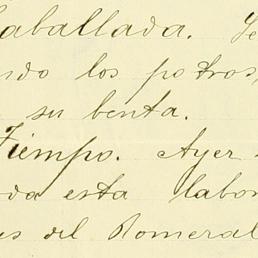 Caballada. Se
ndo los potros,
su benta.
Tiempo. Ayer
da esta labor
del Romeral